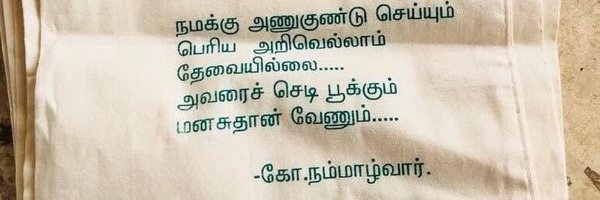 நமக்கு அணுகுண்டு செய்யும்
பெரிய அறிவெல்லாம்
தேவையில்லை.....
அவரைச் செடி பூக்கும்
மனசுதான் வேணும்.....
-கோ.நம்மாழ்வார்.